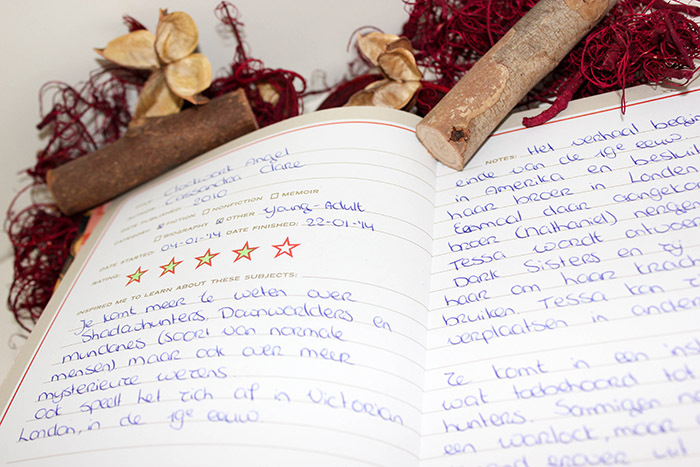 Clockwork Angel
Cassandra Clare
2010
CATEGORY: FICTION NONFICTION MEMOIR
BIOGRAPHY OTHER Young-Adult
DATE STARTED: 04-01-'14 DATE FINISHED: 22-01-'14
RATING:
INSPIRED ME TO LEARN ABOUT THESE SUBJECTS:
Je komt meer te weten over
Shadowhunters, Downworlders en
mundanes (soort van normale
mensen) maar ook over meer
mysterieuze wezens.
Ook speelt het zich af in Victorian
London, in de 19e eeuw.
NOTES: Het verhaal begin
einde van de 19e eeuw.
in Amerika en besluit
haar broer in Londen
Eenmaal daar aangekom
broer (Nathaniel) nergen
Tessa wordt ontvoer
Dark Sisters en zij
haar om haar krach
bruiken. Tessa kan z
verplaatsen in ander
Ze komt in een inst
wat toebehoord tot
hunters. Sommigen n
een warlock, maar
wil